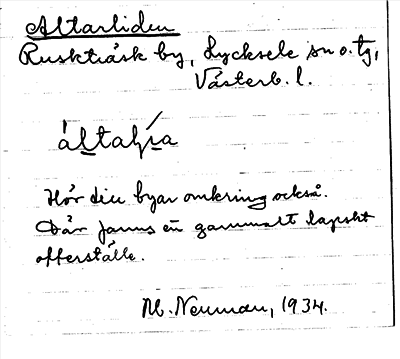 Altarliden
Ruskträsk by, Lycksele sn o. tg,
Västerb. l.
általía
Hör dit byar omkring också.
Där fanns en gammalt lapskt
offerställe.
M. Neuman, 1934.